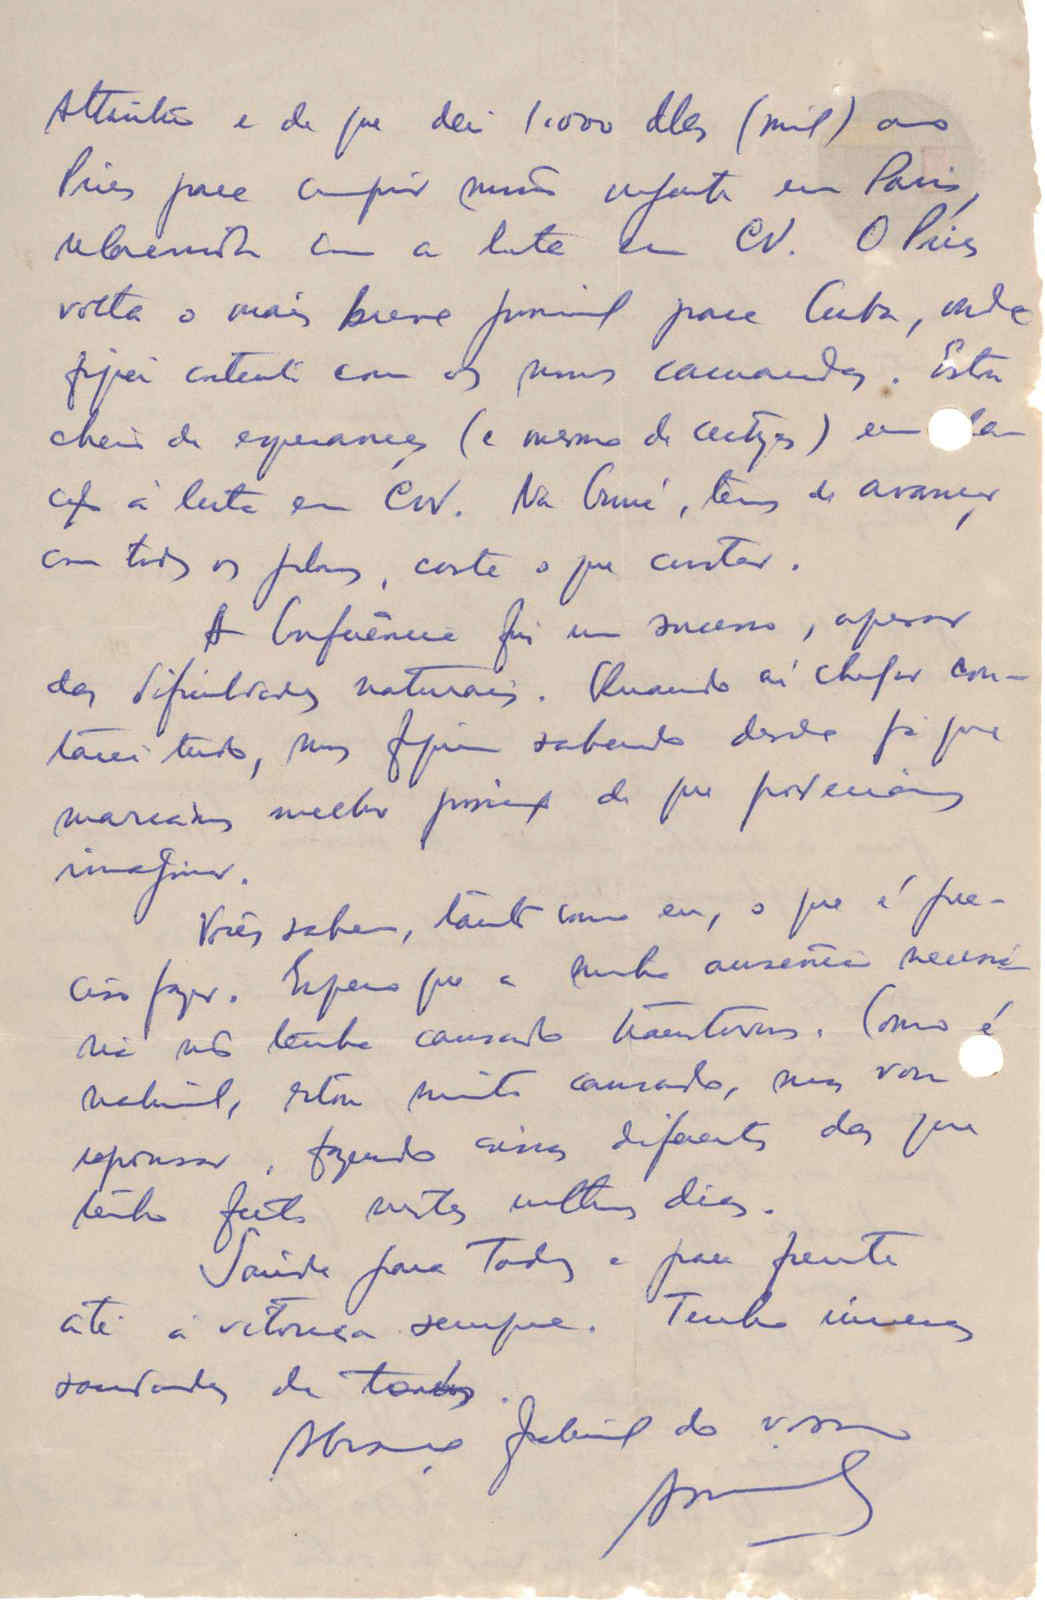 e de que dei 1.000 dles (mil) ao
Pires para cumprir missão urgente em Paris,
relacionada com a luta em CV. O Pires
volta o mais breve possivel para Cuba, onde
fiquei contente com os nossos camaradas. Estou
cheio de esperanças (e mesmo de certezas) em
à luta em CV. Na Guiné, temos de avançar,
com todos os planos, custe o que custar.
A Conferência foi um sucesso, apesar
das dificuldades naturais. Quando aí chegar con-
tarei tudo, mas fiquem sabendo desde já que
marcámos melhor posição do que poderiamos
imaginar.
Vocês sabem, tanto como eu, o que é pre-
ciso fazer. Espero que a minha ausência necessá-
ria não tenha causado transtornos. Como é
natural, estou muito cansado, mas vou
repousar, fazendo coisas diferentes das que
tenho feito nestes ultimos dias.
Saúde para Todos e para frente
até à vitória sempre. Tenho imensas
saudades de todos.
Abraço fraternal do vosso